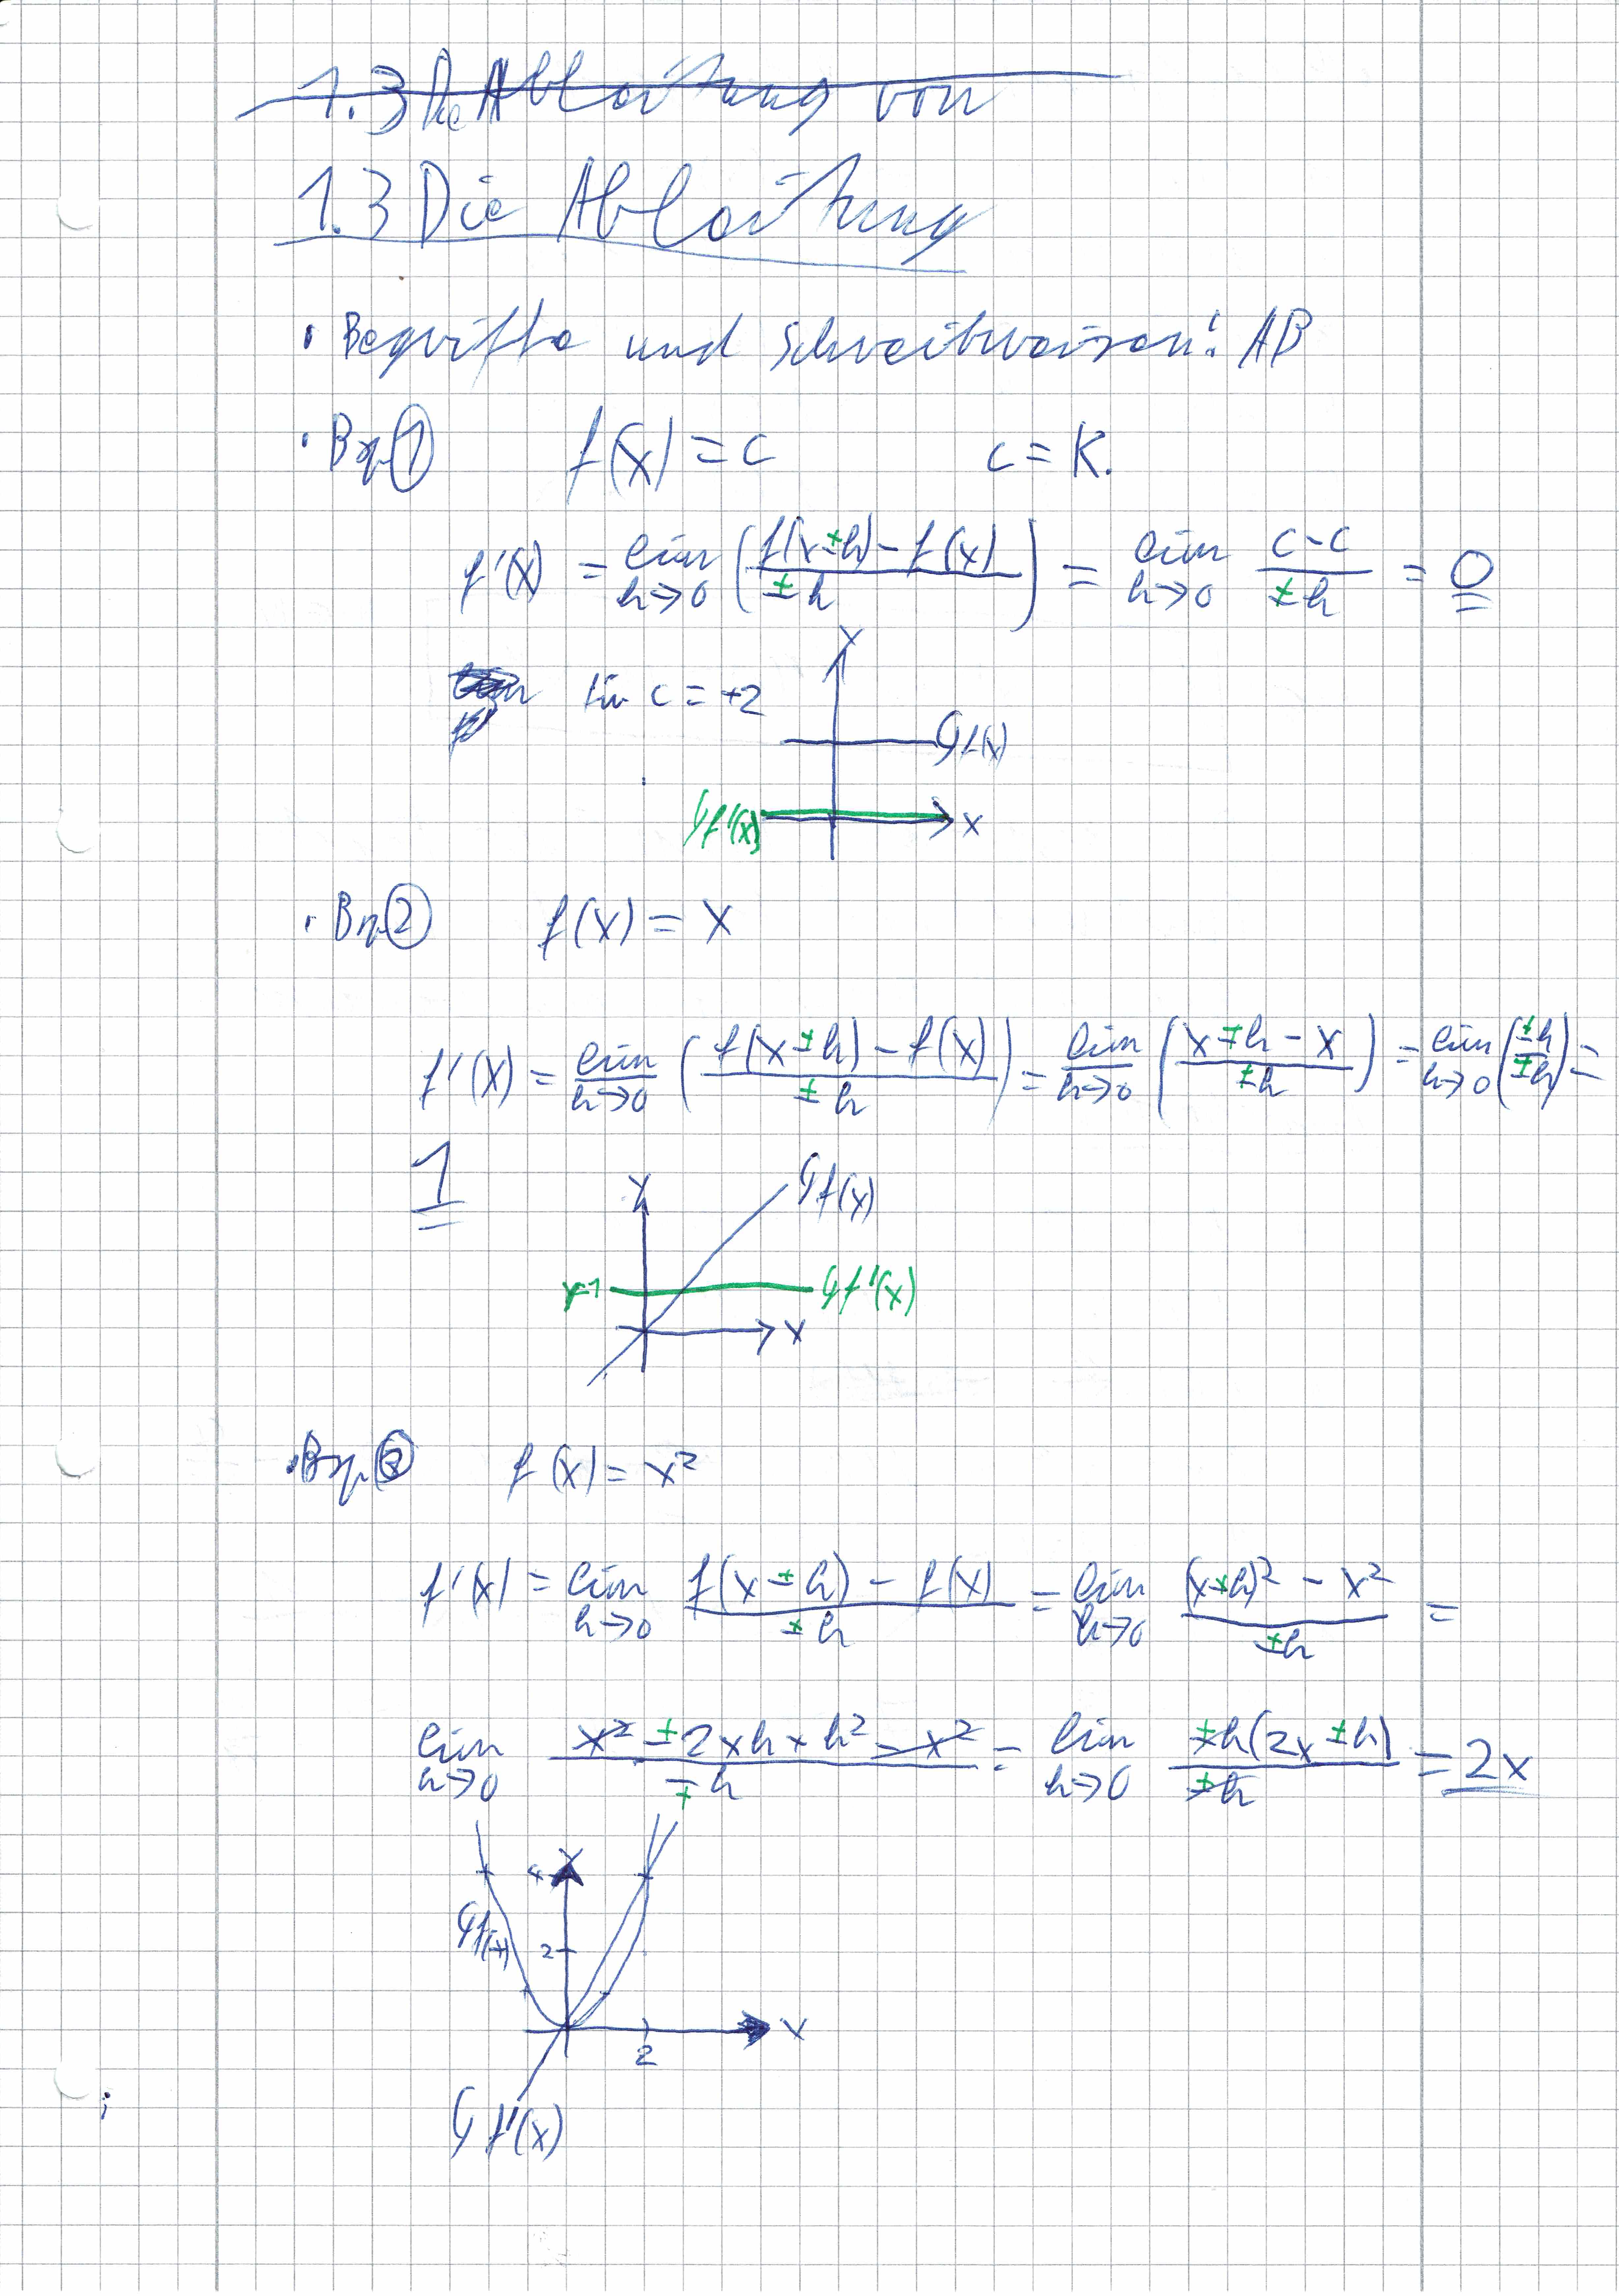 1.3 Die Ableitung von
1.3 Die Ableitung
· Begriffe und Schreibweisen: AB
· Bsp. ① f(x) = c c = K.
f'(x) = lim h→0 (f(x±h) - f(x) / ±h) = lim h→0 c-c / ±h = 0
für c = +2
y
Gf(x)
Gf'(x)
x
· Bsp. ② f(x) = x
f'(x) = lim h→0 (f(x±h) - f(x) / ±h) = lim h→0 (x±h - x / ±h) = lim h→0 (±h / ±h) =
1
y
Gf(x)
y=1 Gf'(x)
x
· Bsp. ③ f(x) = x²
f'(x) = lim h→0 f(x±h) - f(x) / ±h = lim h→0 (x±h)² - x² / ±h =
lim h→0 x² ± 2xh + h² - x² / ±h = lim h→0 ±h(2x ±h) / ±h = 2x
4 y
Gf(x) 2
x
2
Gf'(x)